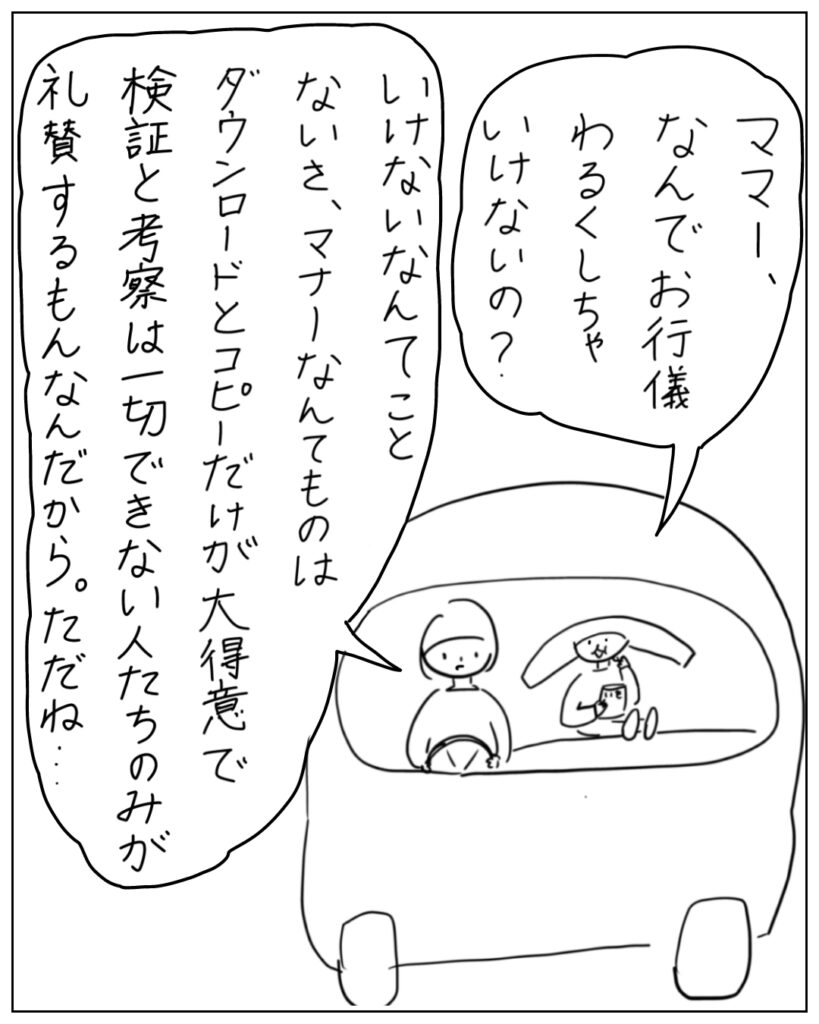 ママー、
なんでお行儀
わるくしちゃ
いけないの?
いけないなんてこと
ないさ、マナーなんてものは
ダウンロードとコピーだけが大得意で
検証と考察は一切できない人たちのみが
礼賛するもんなんだから。ただね…